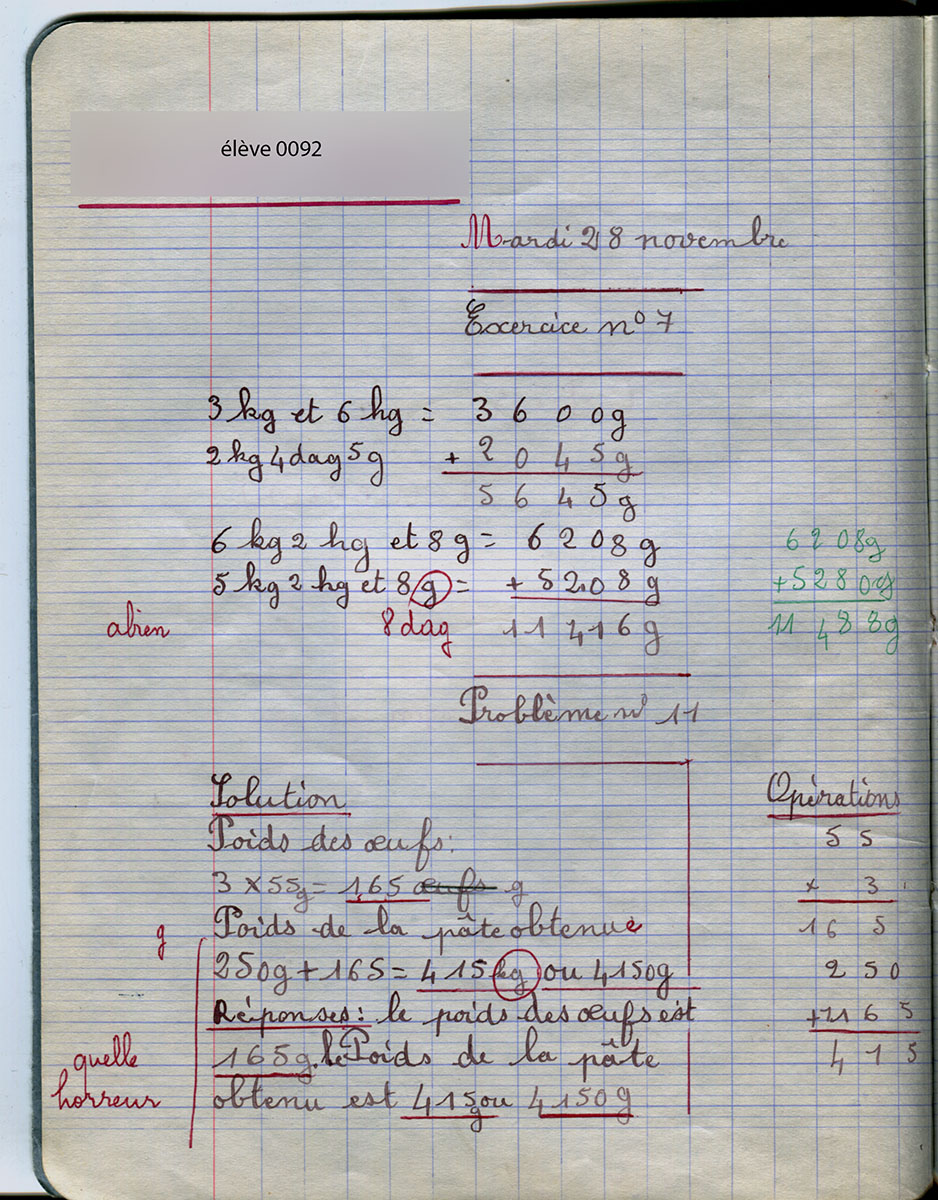 élève 0092
Mardi 28 novembre
Exercice n° 7
3 kg et 6 hg = 3 6 0 0g
2 kg 4 dag 5g + 2 0 4 5g
5 6 4 5g
6 kg 2 hg et 8 g = 6 2 0 8 g
5 kg 2 hg et 8 g = + 5 2 0 8 g
8 dag 11 416 g
6 2 0 8g
+ 5 2 8 0g
11 4 8 8g
abien
Problème n° 11
Solution
Poids des œufs:
3 × 55g = 165 œufs g
Poids de la pâte obtenue
g
250g + 165 = 415 kg ou 4150g
Réponses: le poids des œufs est
165g. le Poids de la pâte
obtenu est 415g ou 4150g
quelle
horreur
Opérations
5 5
× 3
1 6 5
2 5 0
+ 1 6 5
4 1 5